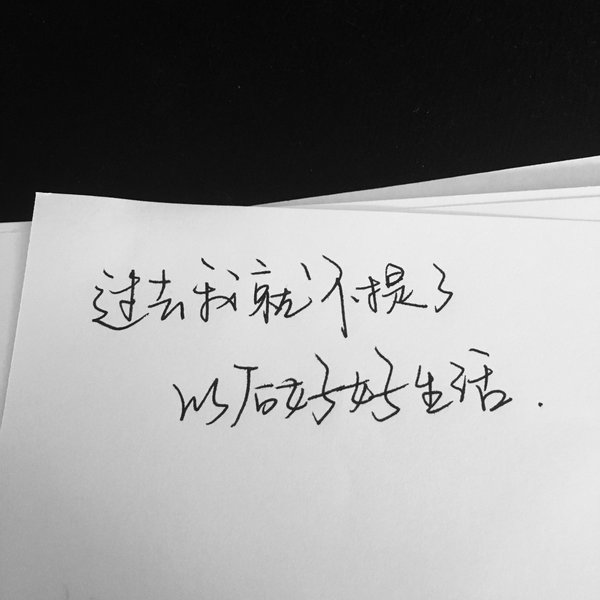 过去我就不提了
以后好好生活.